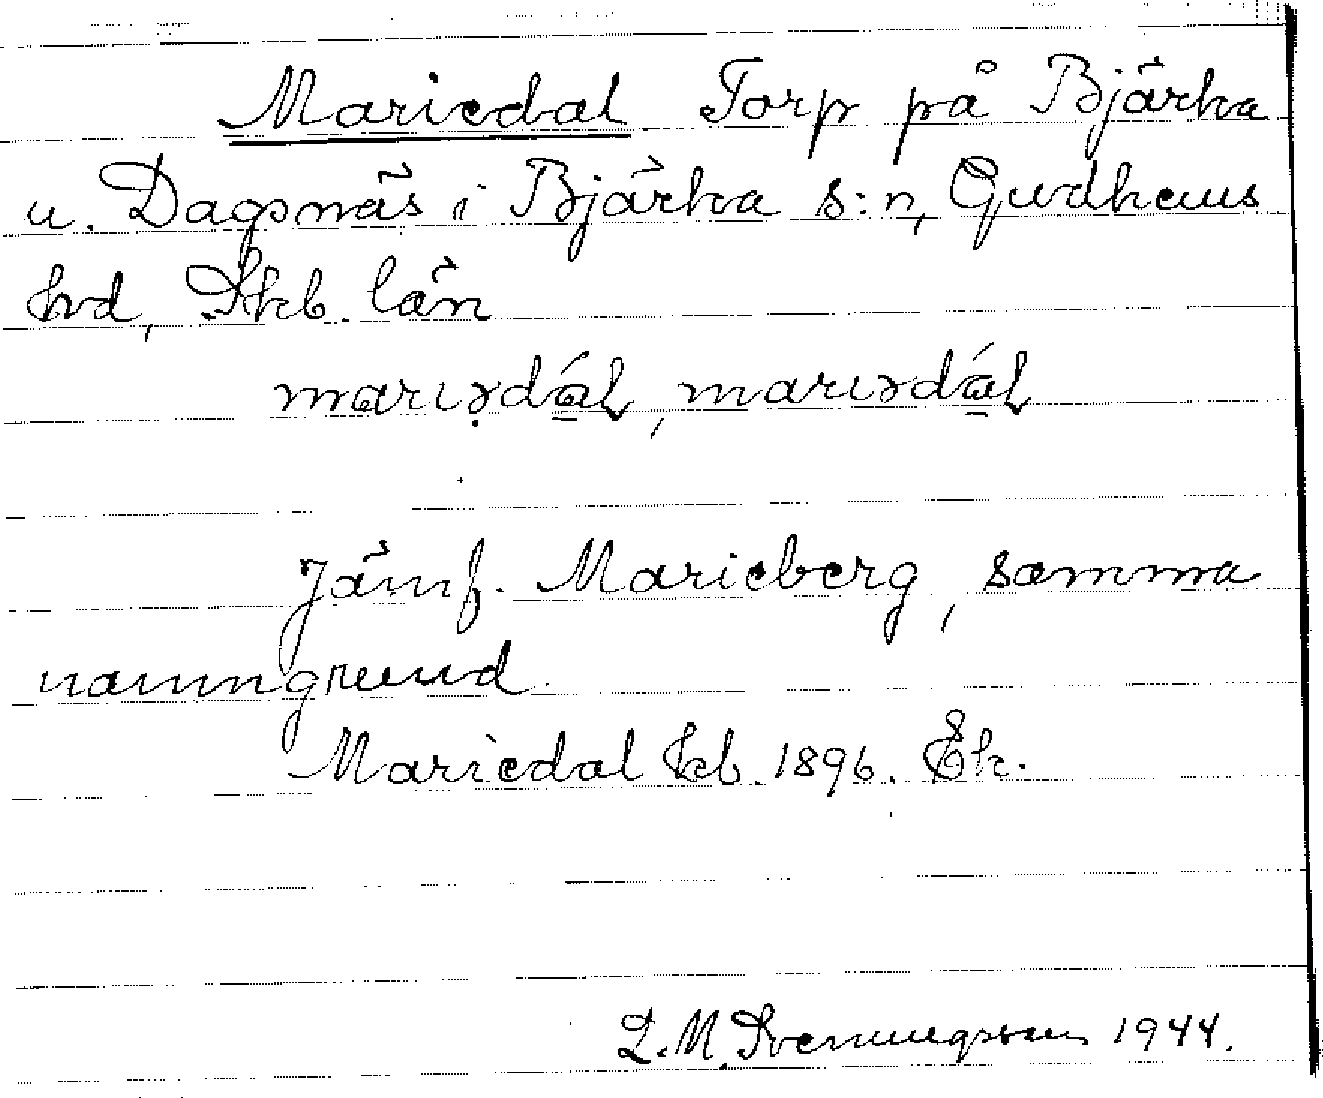 Mariedal Torp på Bjärka
u. Dagsnäs i Bjärka s:n, Gudhems
hd, Skb. län
marıədál, marıədál
Jämf. Marieberg, samma
namngrund.
Mariedal kb. 1896. Ek.
L. M. Svenungsson 1944.